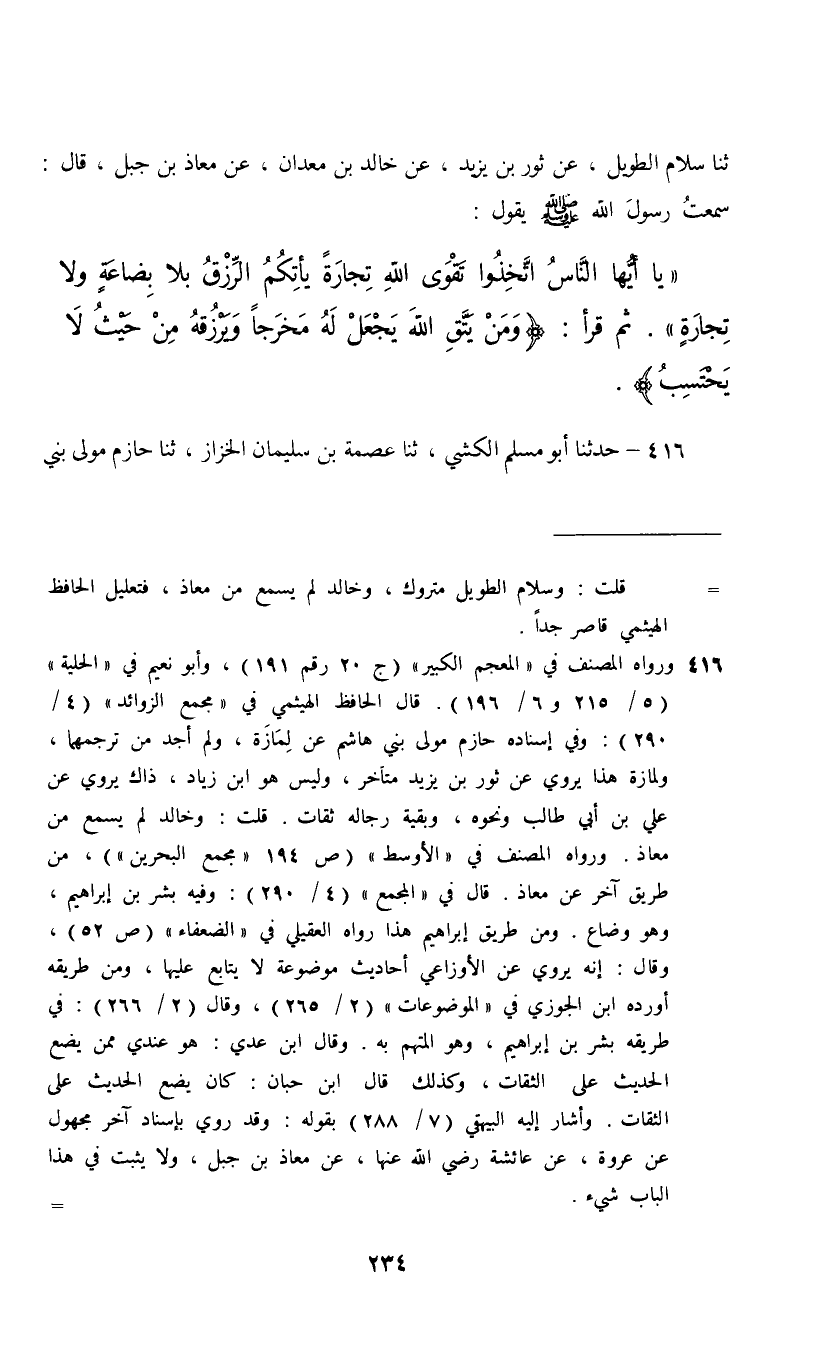 ثنا سلام الطويل ، عن ثور بن يزيد ، عن خالد بن معدان ، عن معاذ بن جبل ، قال :
سمعتُ رسولَ الله ﷺ يقول :
« يا أَيُّها النَّاسُ اتَّخِذُوا تَقْوَى اللهِ تِجارَةً يأتِكُمُ الرِّزْقُ بلا بِضاعَةٍ ولا
تِجارَةٍ » . ثم قرأ : ﴿وَمَنْ يَتَّقِ اللهَ يَجْعَلْ لَهُ مَخرَجاً وَيَرْزُقهُ مِنْ حَيْثُ لَا
يَحْتَسِبُ﴾ .
٤١٦ – حدثنا أبو مسلم الكشي ، ثنا عصمة بن سليمان الخزاز ، ثنا حازم مولى بني
= قلت : وسلام الطويل متروك ، وخالد لم يسمع من معاذ ، فتعليل الحافظ
الهيثمي قاصر جداً .
٤١٦ ورواه المصنف في « المعجم الكبير » (ج ٢٠ رقم ١٩١) ، وأبو نعيم في « الحلية »
(٥ / ٢١٥ و ٦ / ١٩٦) . قال الحافظ الهيثمي في « مجمع الزوائد » (٤ /
٢٩٠) : وفي إسناده حازم مولى بني هاشم عن لِمَازَة ، ولم أجد من ترجمهما ،
ولمازة هذا يروي عن ثور بن يزيد متأخر ، وليس هو ابن زياد ، ذاك يروي عن
علي بن أبي طالب ونحوه ، وبقية رجاله ثقات . قلت : وخالد لم يسمع من
معاذ . ورواه المصنف في « الأوسط » (ص ١٩٤ « مجمع البحرين ») ، من
طريق آخر عن معاذ . قال في « المجمع » (٤ / ٢٩٠) : وفيه بشر بن إبراهيم ،
وهو وضاع . ومن طريق إبراهيم هذا رواه العقيلي في « الضعفاء » (ص ٥٢) ،
وقال : إنه يروي عن الأوزاعي أحاديث موضوعة لا يتابع عليها ، ومن طريقه
أورده ابن الجوزي في « الموضوعات » (٢ / ٢٦٥) ، وقال (٢ / ٢٦٦) : في
طريقه بشر بن إبراهيم ، وهو المتهم به . وقال ابن عدي : هو عندي ممن يضع
الحديث على الثقات ، وكذلك قال ابن حبان : كان يضع الحديث على
الثقات . وأشار إليه البيهقي (٧ / ٢٨٨) بقوله : وقد روي بإسناد آخر مجهول
عن عروة ، عن عائشة رضي الله عنها ، عن معاذ بن جبل ، ولا يثبت في هذا
الباب شيء . =
٢٣٤